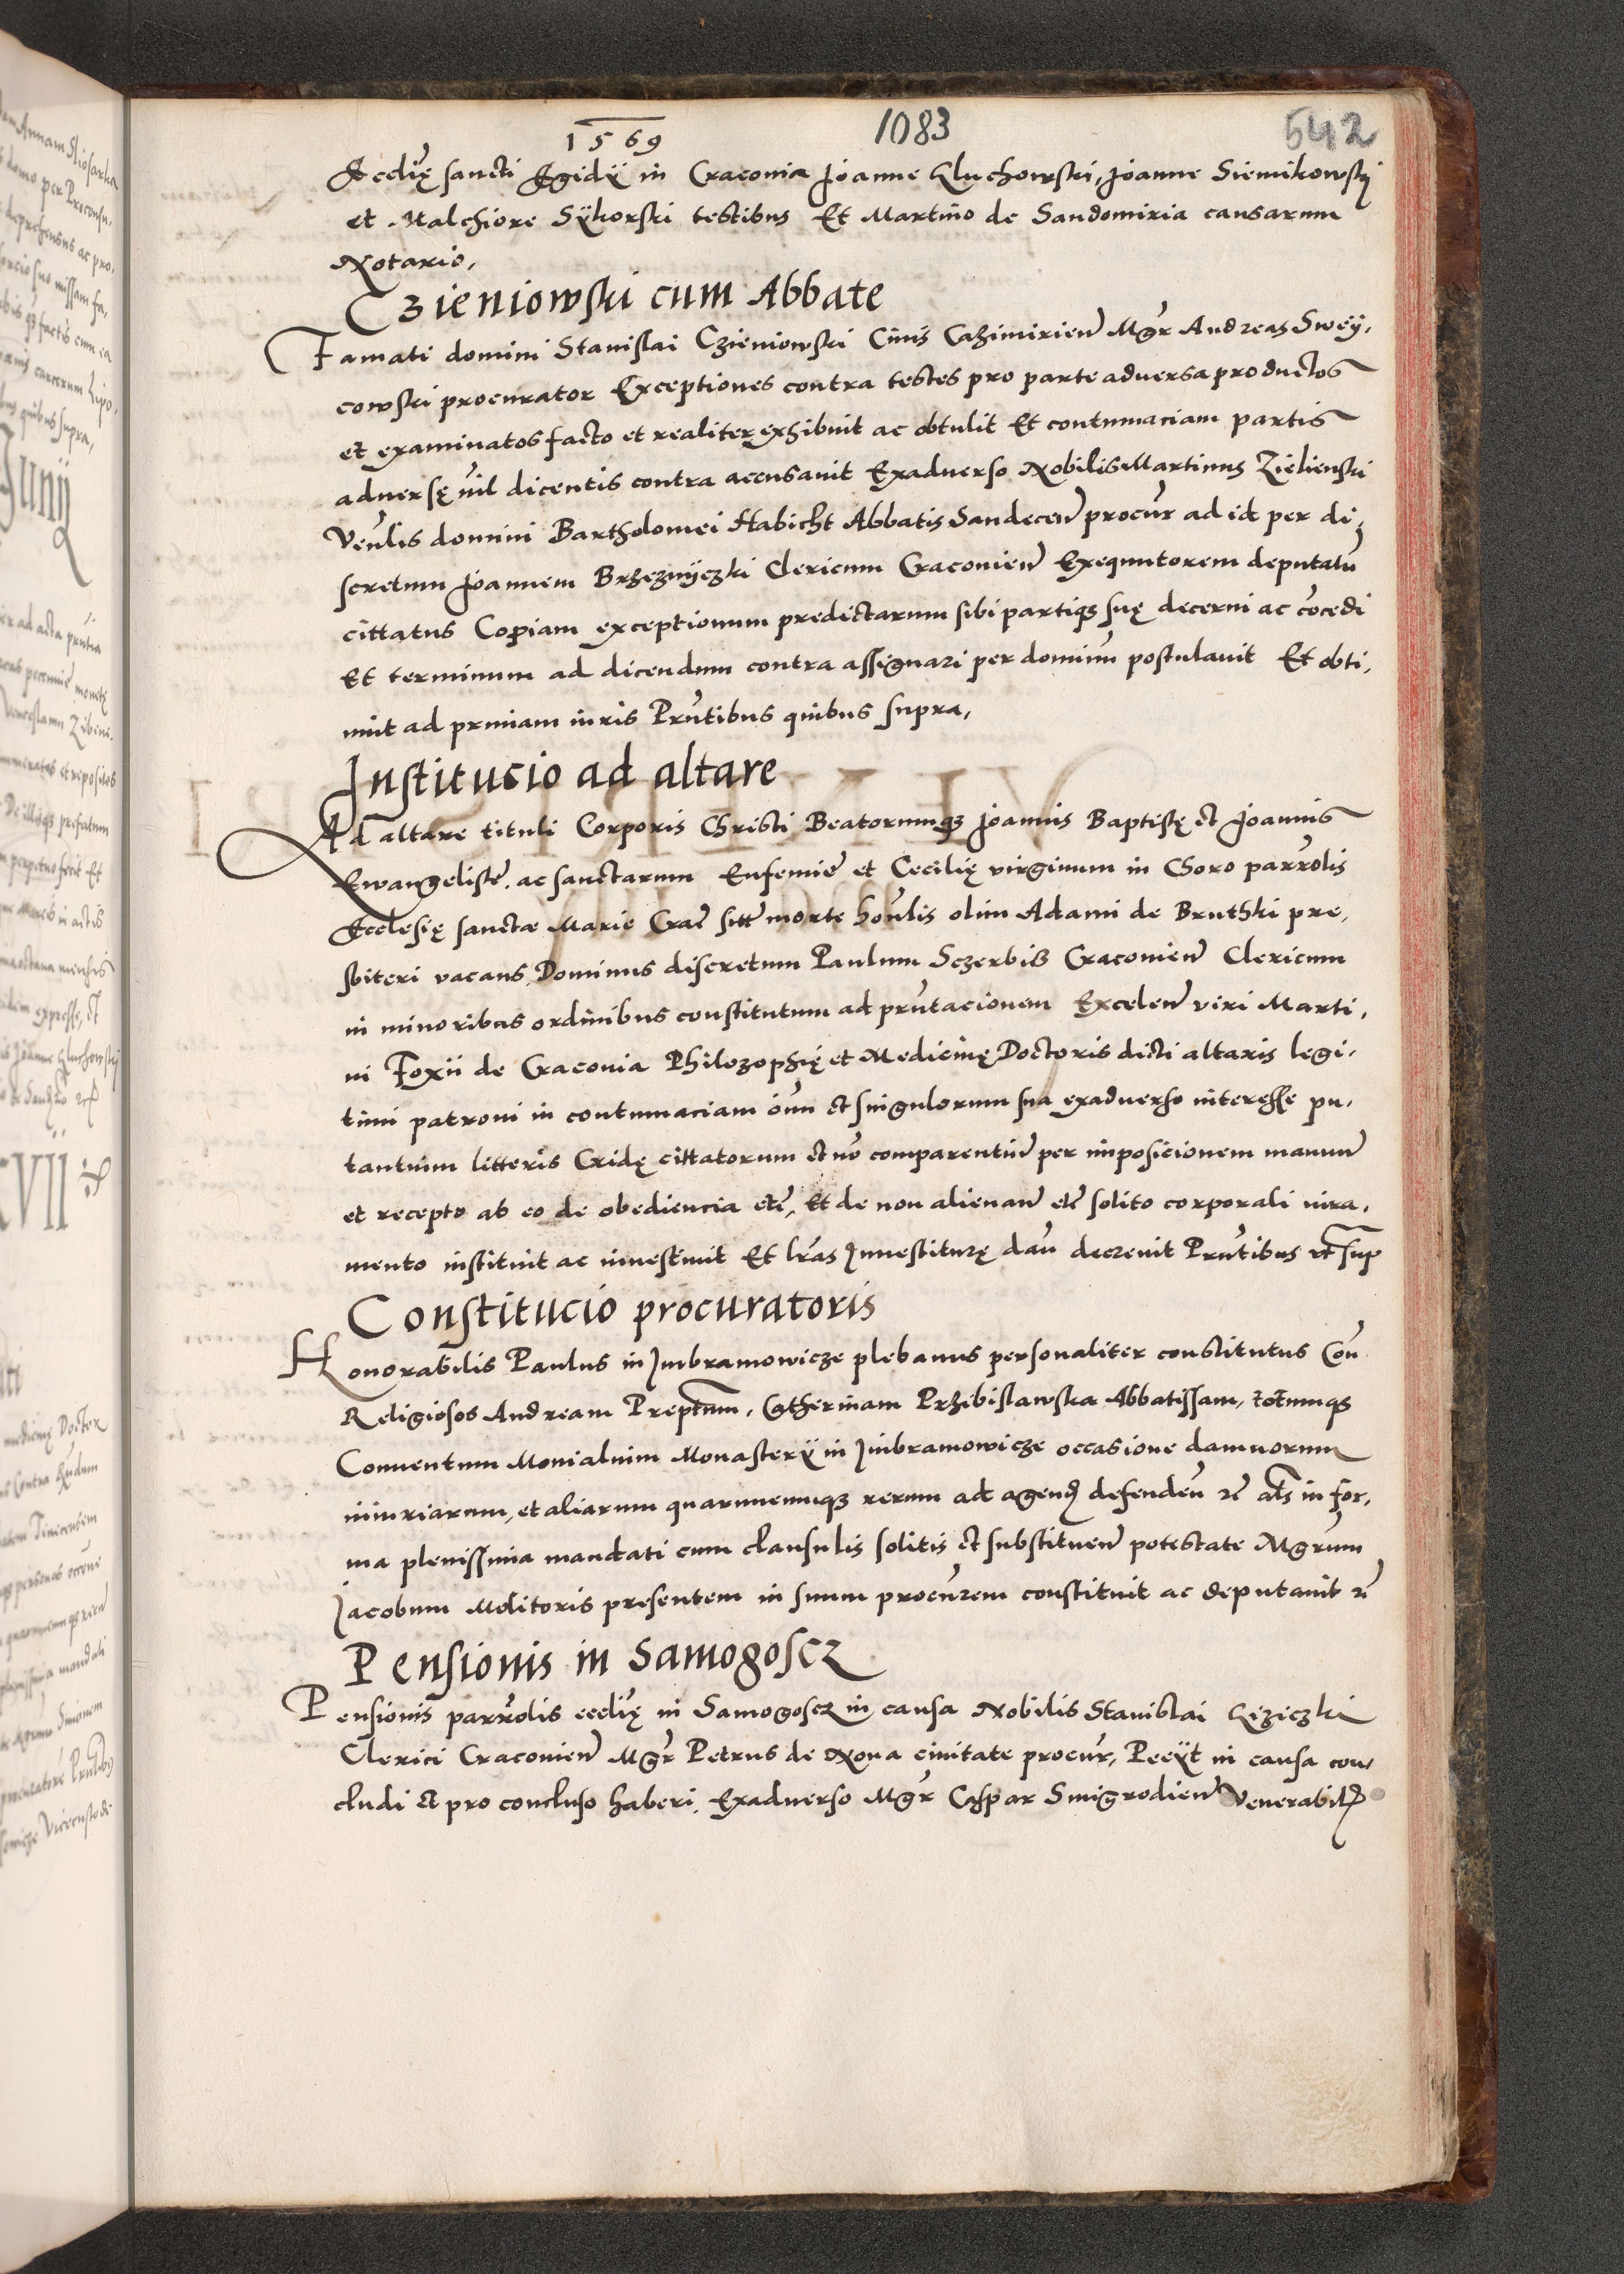 1569
1083
542
Ecclię sancti Egidÿ in Cracovia Joanne Gluchowski, Joanne Siemikowskÿ
et Malchiore Sÿkorski testibus Et Martino de Sandomiria causarum
Notario,
Czieniowski cum Abbate
Famati domini Stanislai Czieniowski Civis Cazimirień Mgr̃ Andreas Sweÿ,
cowski procurator Exceptiones contra testes pro parte adversa productos
et examinatos facto et realiter exhibuit ac obtulit Et contumaciam partis
adversę nil dicentis contra accusavit Exadverso Nobilis Martinus Zielienski
Ven̄lis domini Bartholomei Habicht Abbatis Sandeceń procur̄ ad id per di,
scretum Joannem Brzeznÿczki Clericum Cracovień Exequutorem deputatū
cittatus Copiam exceptionum predictarum sibi partiq₃ suę decerni ac cōcedi
Et terminum ad dicendum contra assignari per dominū postulavit Et obti,
nuit ad prmiam iuris Prn̄tibus quibus supra,
Institucio ad altare
Ad altare tituli Corporis Christi Beatorumq₃ Joannis Baptistę et Joannis
Ewangelistę, ac sanctarum Eufemię et Cecilię virginum in Choro parrōlis
Ecclesię sanctæ Marie Crac̄ sitt̄ morte hon̄lis olim Adami de Bruthki pre,
sbiteri vacans, Dominus discretum Paulum Sczerbiß Cracovień Clericum
in minoribus ordinibus constitutum ad prn̄tacionem Exceleń viri Marti,
ni Foxii de Cracovia Philozophię et Medicinę Doctoris dicti altaris legi,
timi patroni in contumaciam oīum et singulorum sua exadverso interesse pu,
tantuim litteris Cridę cittatorum et nō comparentiū per imposicionem manuū
et recepto ab eo de obediencia etc̄, Et de non alienań etc̄ solito corporali iura,
mento instituit ac investivit Et lr̄as Investiturę dań decrevit Prn̄tibus vt sup
Constitucio procuratoris
Honorabilis Paulus in Imbramowicze plebanus personaliter constitutus Coń
Religiosos Andream Prep̄tum, Catherinam Przibislawska Abbatissam, totumq₃
Conventum Monialium Monasterÿ in Imbramowicze occasione damnorum
iniuriarum, et aliarum quarumcumq₃ rerum ad agend̄ defendeń etc̄ al̄s in for,
ma plenissima mandati cum clausulis solitis et substitueń potestate Mgr̄um
Jacobum Molitoris presentem in suum procur̄em constituit ac deputavit etc̄
Pensionis in Samogoscz
Pensionis parrōlis ecclię in Samogoscz in causa Nobilis Stanislai Liziczki
Clerici Cracovień Mgr̃ Petrus de Nova civitate procur̄, Peeÿt in causa con,
cludi et pro concluso haberi, Exadverso Mgr̃ Caspar Smigrodień Venerabil̄